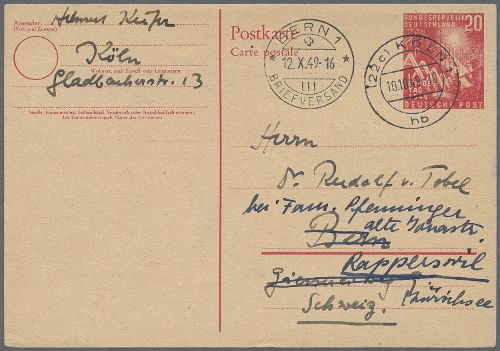 Absender:
Helmut
Köln
Gladbacherstr. 13
Wohnort, auch Zustell- oder Leitpostamt
Straße, Hausnummer, Gebäudeteil, Stockwerk oder Postschließfachnummer,
bei Untermietern auch Name des Vermieters
Postkarte
Carte postale
BERN 1
12.X.49-16
III
BRIEFVERSAND
(22c) KÖLN
10.10.
hb
BUNDESREPUBLIK
DEUTSCHLAND
20
TAG
DEUTSCHE POST
Herrn
Dr. Rudolf v. Tobel
bei Fam. Pfenninger
alte Jonastr.
Bern
Rapperswil
Zürichsee
Schweiz.